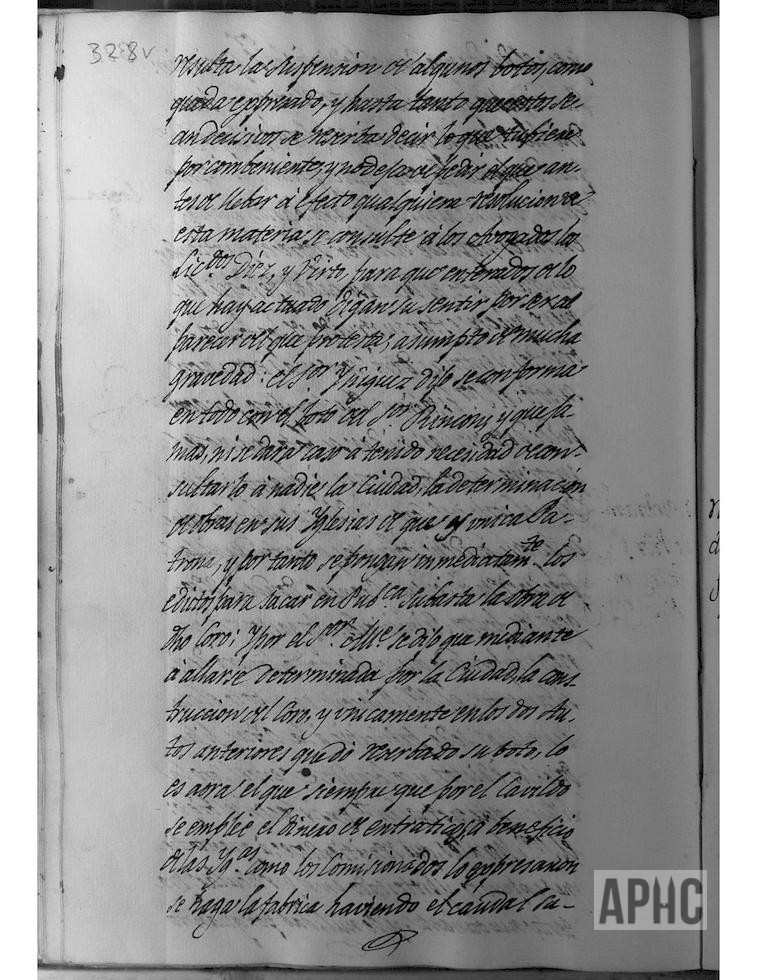 328v
resulta la suspension de algunos botos, como
queda expresado, y hasta tanto que estos se-
an decisivos se reserba decir lo que tubiere
por combeniente, y no deja de pedir el que an-
tes de llebar a efecto qualquiera resolucion de
esta materia se consulte a los Abogados los
Licdos Diez, y Pinto, para que enterados de lo
que hay actuado digan su sentir por ser al
parecer del que protesta, asumpto de mucha
gravedad: el Sor Yñiguez dijo se conforma
en todo con el boto del Sor Rincon, y que ja
mas, ni se dara caso a tenido necesidad de con-
sultarlo a nadie la Ciudad, la determinacion
de obras en sus Yglesias de que es unica Pa-
trona, y por tanto se pongan inmediatamte los
edictos para sacar en Pubca subasta la obra de
dho Coro: Y por el Sor Me se dijo que mediante
a allarse determinada por la Ciudad, la cons-
truccion del Coro, y unicamente en los dos Au-
tos anteriores quedo reserbado su boto, lo
es aora el que siempre que por el Cavildo
se emplee el dinero de entraticos, a beneficio
de las Ygas como los Comisionados lo expresaron
se haga la fabrica haviendo el caudal su-
APHC